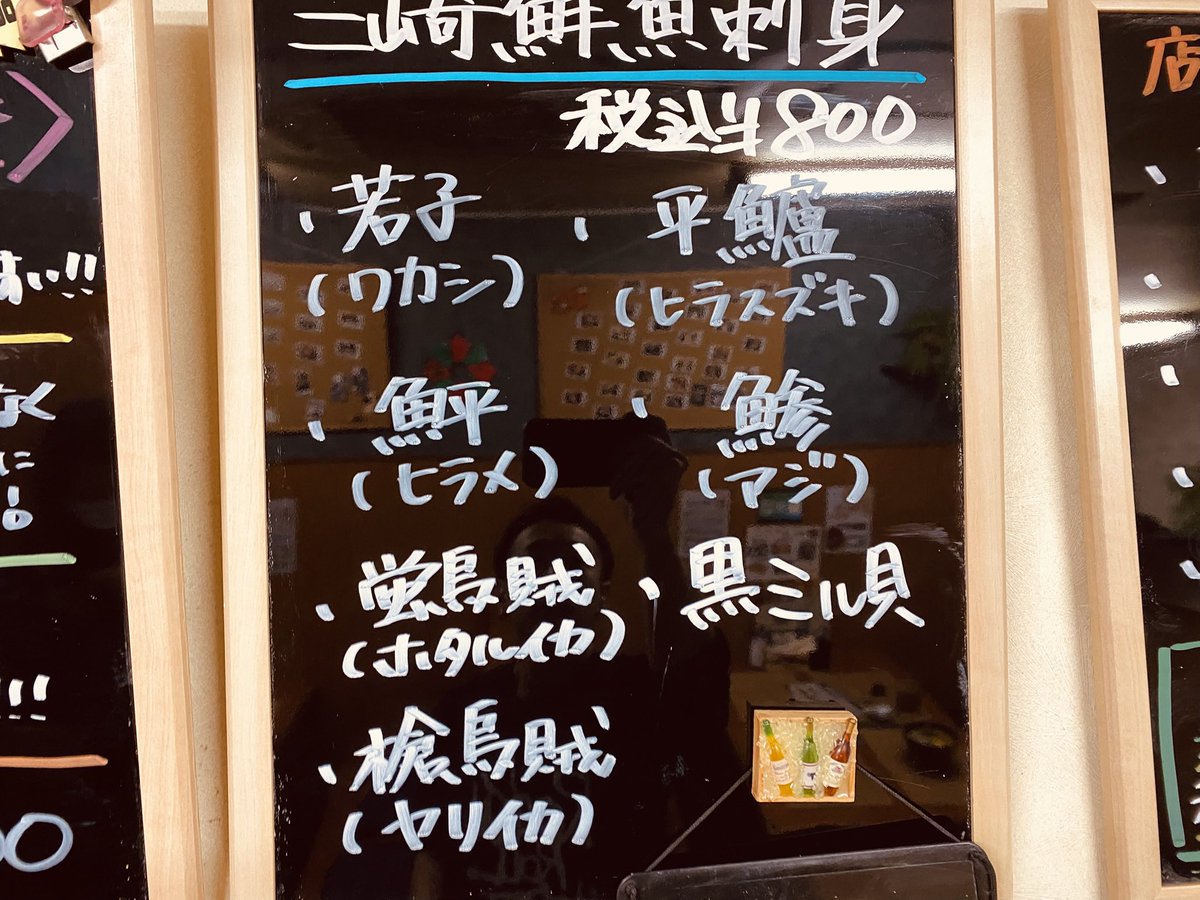 三崎鮮魚刺身
税込み800
・若子
(ワカシ)
・平鱸
(ヒラスズキ)
・鮃
(ヒラメ)
・鯵
(アジ)
・蛍烏賊
(ホタルイカ)
・黒ミル貝
・槍烏賊
(ヤリイカ)
い!!
なく
に
!!!
00
店